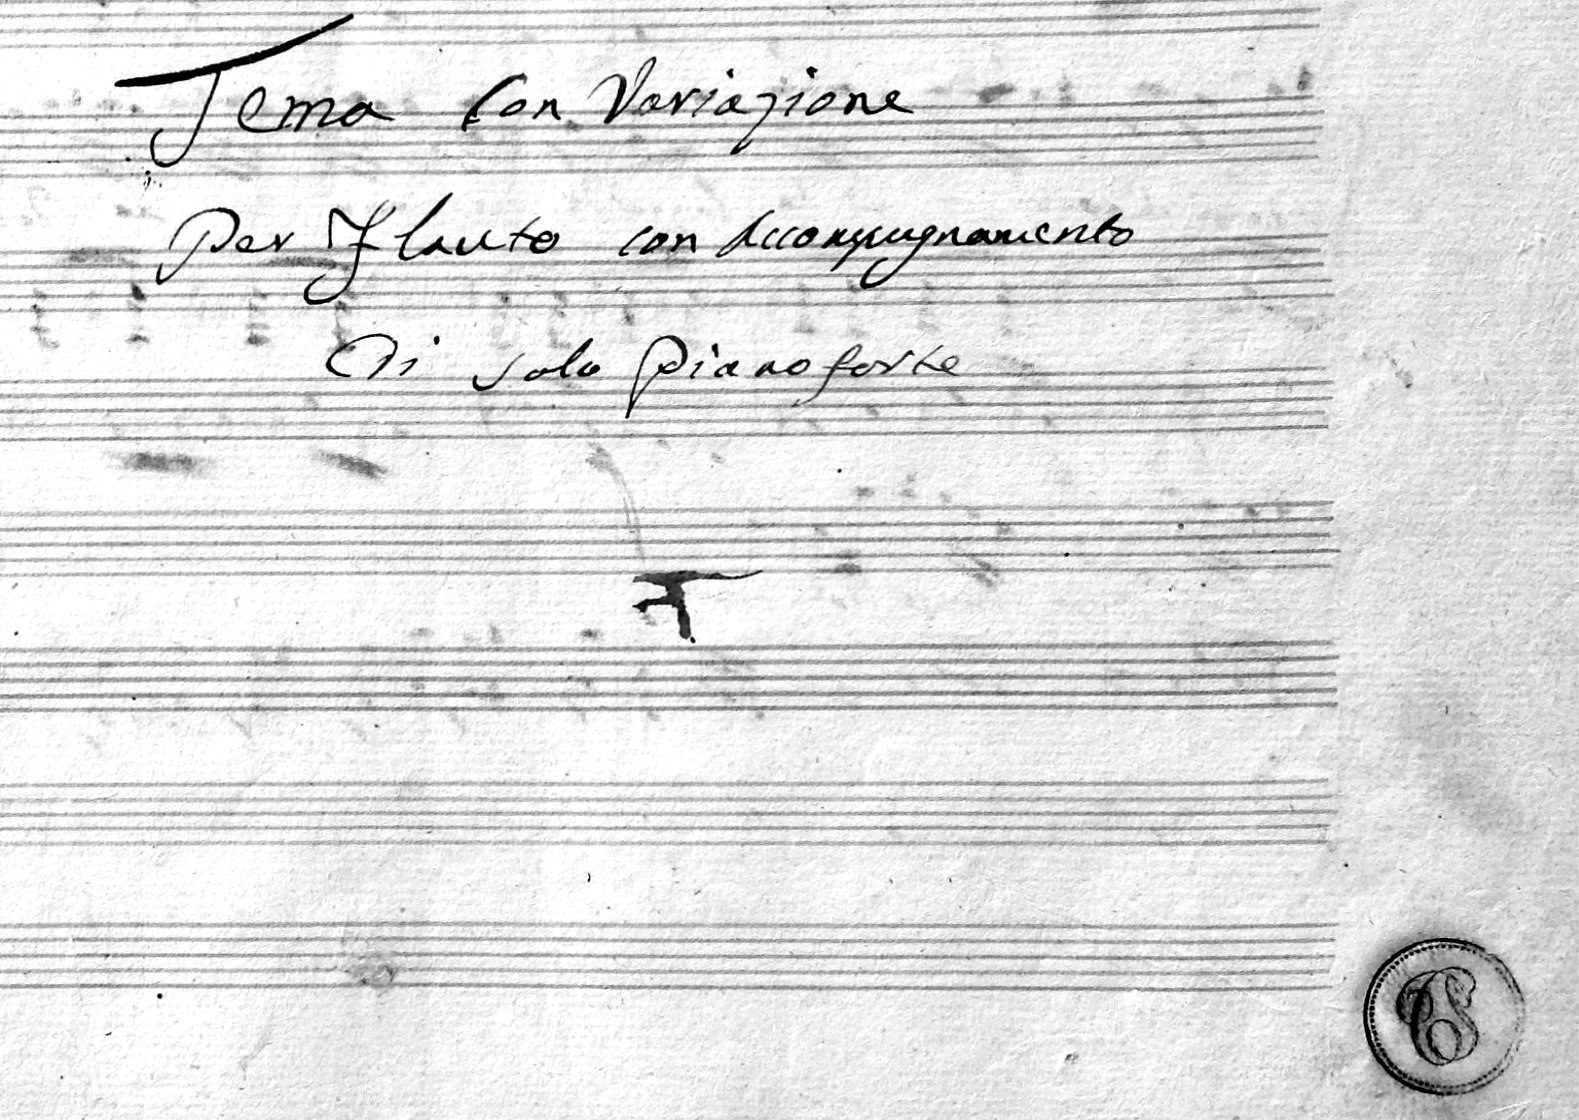 Tema con Variazione
Per Flauto con Accompagnamento
Di solo pianoforte